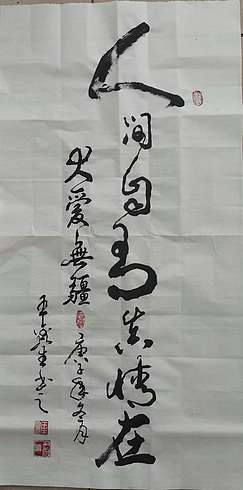 人間自有真情在
大愛無疆
庚子年冬月
生书之